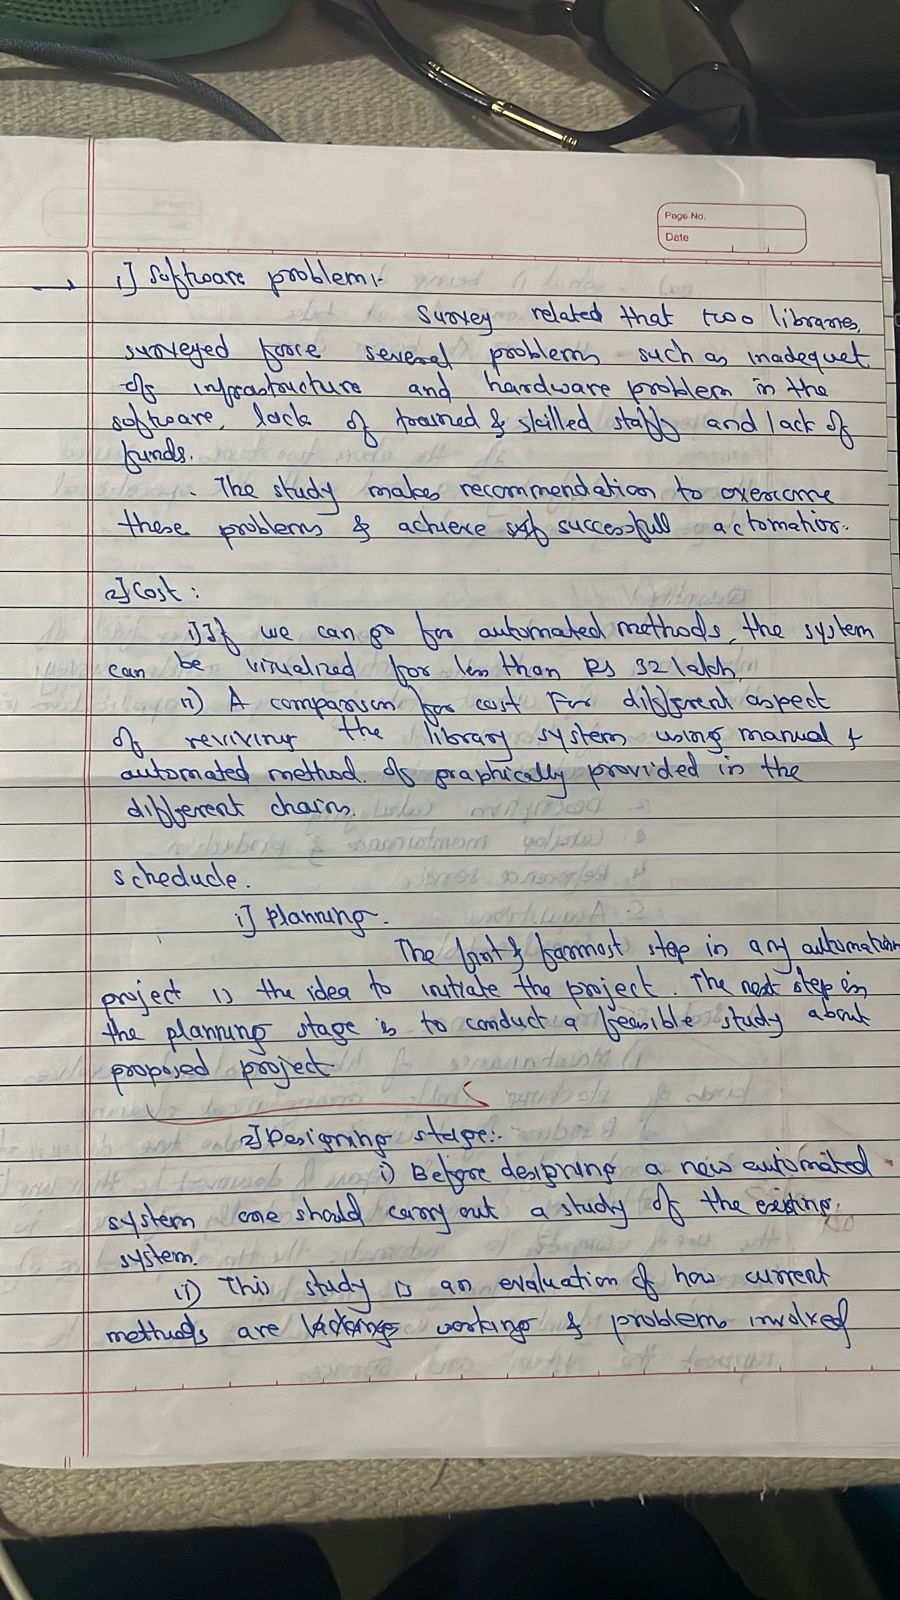 Page No.
Date
→ 1] Software problem :-
Survey related that two libraries,
surveyed force several problems such as inadequet
of infrastructure and hardware problem in the
software, lack of trained & skilled staff and lack of
funds.
. The study makes recommendation to overcome
these problems & achieve successfull actomation.
2] Cost :
i) If we can go for automated methods, the system
can be visualized for less than Rs 32 lakh,
ii) A comparison for cost For different aspect
of reviving the library system using manual &
automated method. of graphically provided in the
different chairs.
schedule.
i] Planning.
The first & farmost step in any automation
project is the idea to initiate the project. The next step in
the planning stage is to conduct a feasible study about
proposed project
2] Designing stage:-
i) Before designing a new automated
system one should carry out a study of the existing
system.
ii) This study is an evaluation of how current
methods are workings & problem involved